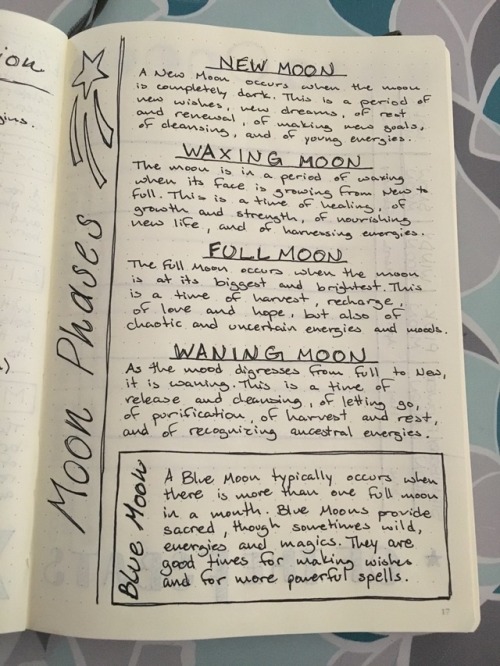 ion
gins.
Moon Phases
NEW MOON
A New Moon occurs when the moon
is completely dark. This is a period of
new wishes, new dreams, of rest
and renewal, of making new goals,
of cleansing, and of young energies.
WAXING MOON
The moon is in a period of waxing
when its face is growing from New to
Full. This is a time of healing, of
growth and strength, of nourishing
new life, and of harnessing energies.
FULL MOON
The Full Moon occurs when the moon
is at its biggest and brightest. This
is a time of harvest, recharge,
of love and hope, but also of
chaotic and uncertain energies and moods.
WANING MOON
As the mood digresses from Full to New,
it is waning. This is a time of
release and cleansing, of letting go,
of purification, of harvest and rest,
and of recognizing ancestral energies.
Blue Moon
A Blue Moon typically occurs when
there is more than one full moon
in a month. Blue Moons provide
sacred, though sometimes wild,
energies and magics. They are
good times for making wishes
and for more powerful spells.
37